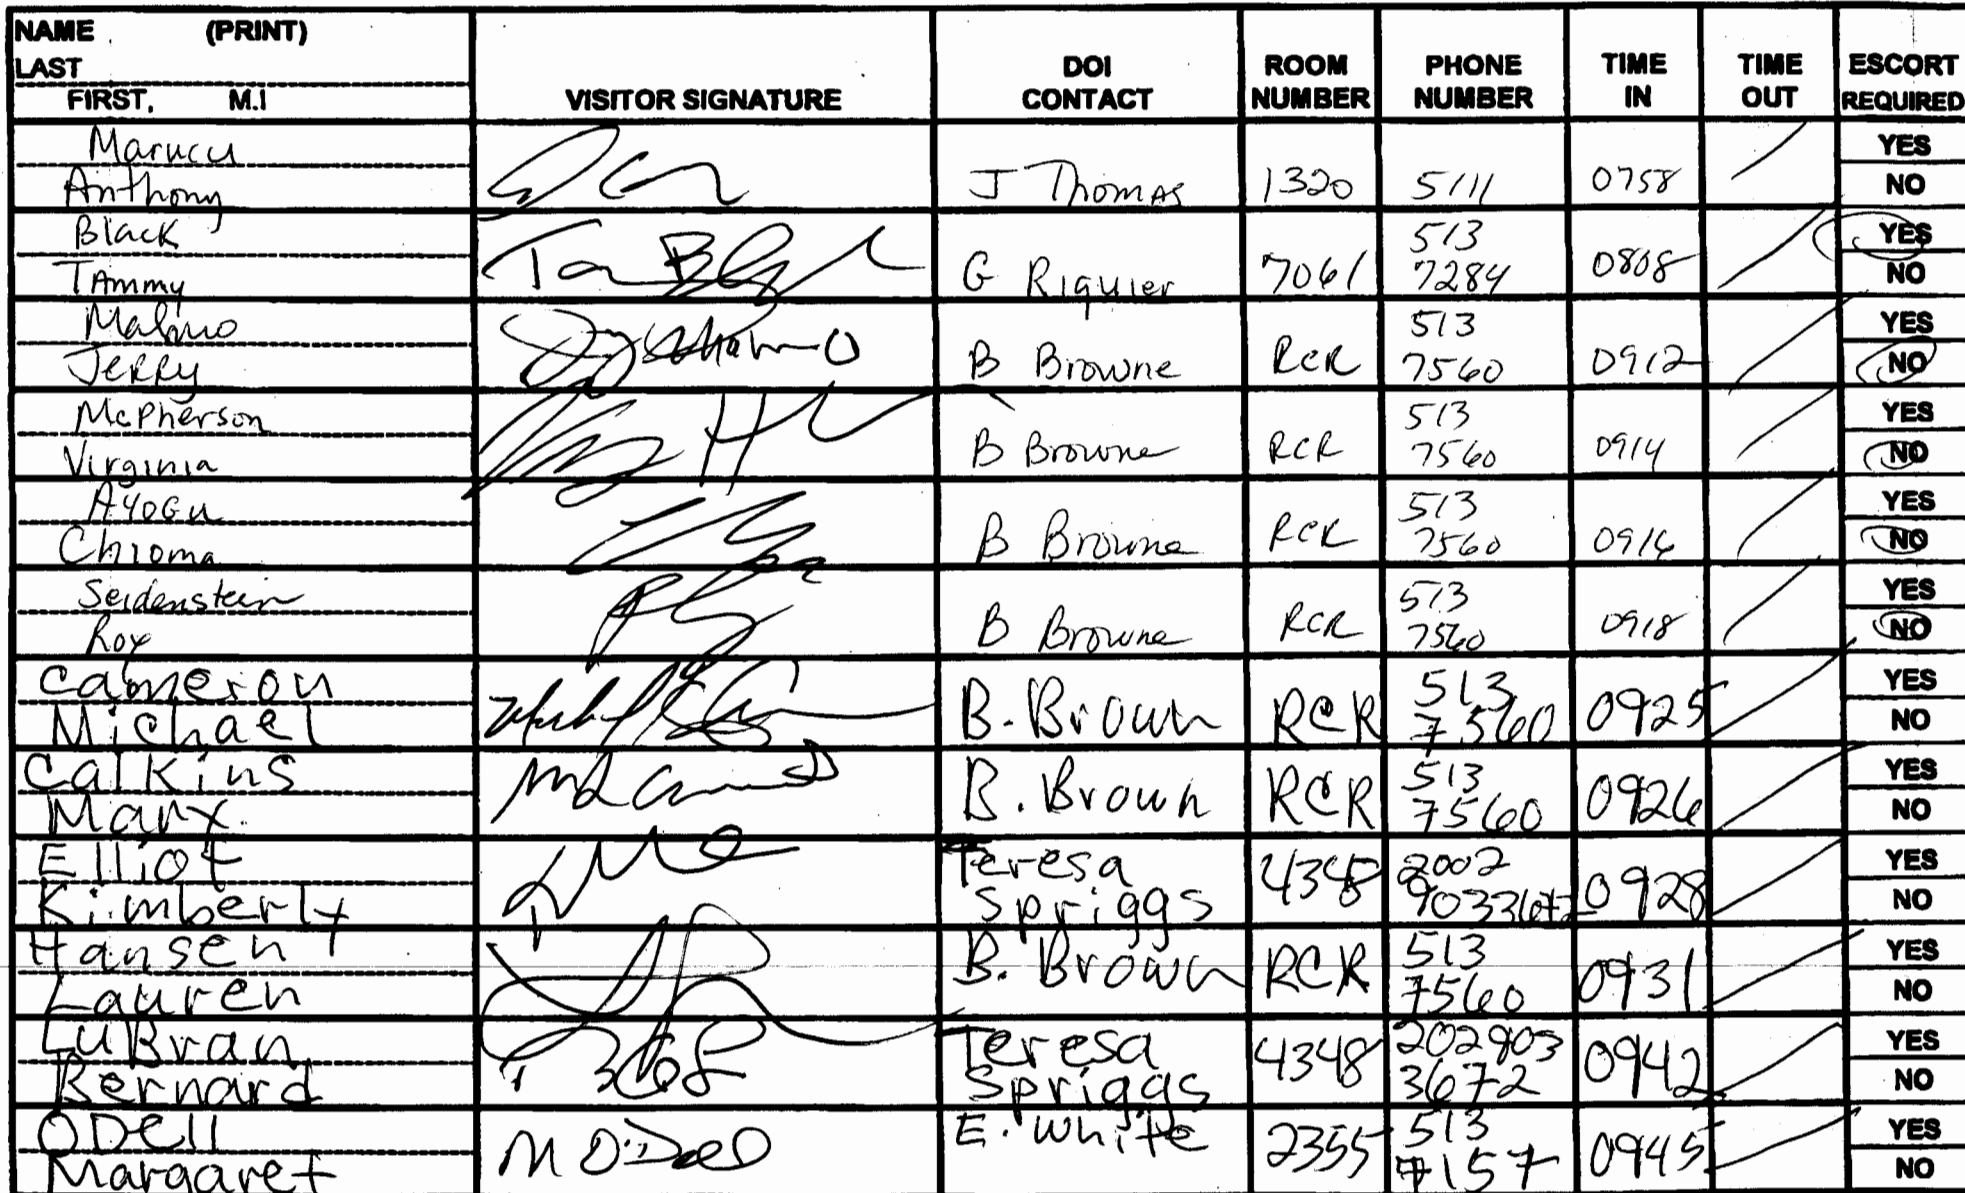 NAME (PRINT)
LAST
FIRST, M.I
VISITOR SIGNATURE
DOI CONTACT
ROOM NUMBER
PHONE NUMBER
TIME IN
TIME OUT
ESCORT REQUIRED
Marucci
Anthony
J Thomas 1320 5111 0758
YES
NO
Black
Tammy
G Riquier 7061 513 7284 0808
YES
NO
Malmo
Jerry
B Browne RCR 513 7560 0912
YES
NO
McPherson
Virginia
B Browne RCR 513 7560 0914
YES
NO
Ayogu
Chioma
B Browne RCR 513 7560 0916
YES
NO
Seidenstein
Roy
B Browne RCR 513 7560 0918
YES
NO
Cameron
Michael
B. Brown RCR 513 7560 0925
YES
NO
Calkins
Mary
B. Brown RCR 513 7560 0926
YES
NO
Elliot
Kimberly
Teresa Spriggs 4348 2002 9033672 0928
YES
NO
Hansen
Lauren
B. Brown RCR 513 7560 0931
YES
NO
LuBran
Bernard
Teresa Spriggs 4348 202903 3672 0942
YES
NO
ODell
Margaret
M O'Dell
E. White 2355 513 7157 0945
YES
NO